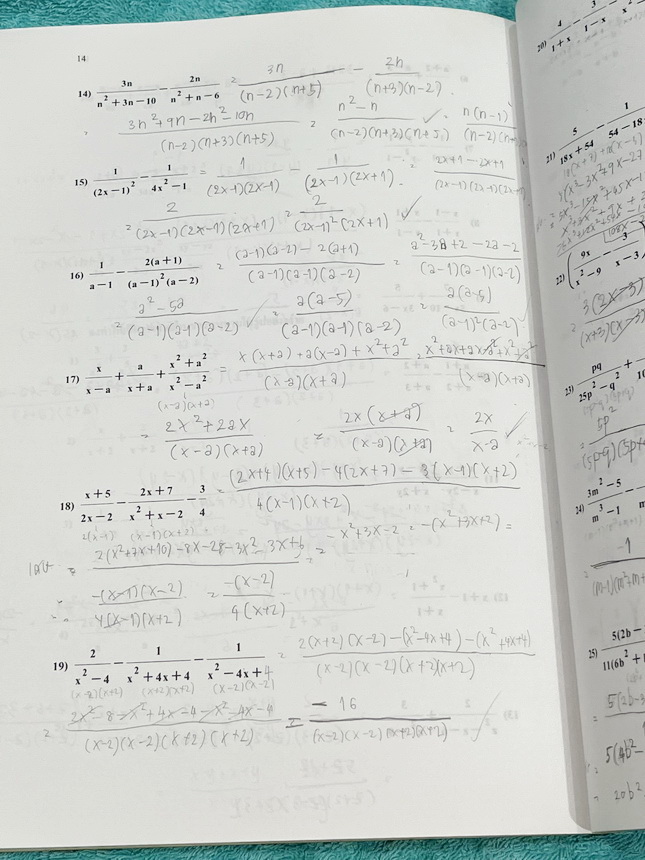 14
14) 3n/(n² + 3n − 10) − 2n/(n² + n − 6) = 3n/((n−2)(n+5)) − 2n/((n+3)(n−2))
= (3n² + 9n − 2n² − 10n)/((n−2)(n+3)(n+5)) = (n² − n)/((n−2)(n+3)(n+5)) ✓ = n(n−1)/((n−2)(n+
15) 1/(2x − 1)² − 1/(4x² − 1) = 1/((2x−1)(2x−1)) − 1/((2x−1)(2x+1)) = (2x+1 − 2x+1)/((2x−1)(2x−1)(2x+
= 2/((2x−1)(2x−1)(2x+1)) = 2/((2x−1)²(2x+1)) ✓
16) 1/(a − 1) − 2(a + 1)/((a − 1)²(a − 2)) = ((a−1)(a−2) − 2(a+1))/((a−1)(a−1)(a−2)) = (a² − 3a + 2 − 2a − 2)/((a−1)(a−1)(a−2))
= (a² − 5a)/((a−1)(a−1)(a−2)) ✓ = a(a−5)/((a−1)(a−1)(a−2)) = a(a−5)/((a−1)²(a−2))
17) x/(x − a) + a/(x + a) + (x² + a²)/(x² − a²) = (x(x+a) + a(x−a) + x² + a²)/((x−a)(x+a)) = (x² + ax + ax − a² + x² + a²)/((x−a)(x+a))
(x−a)(x+a)
= (2x² + 2ax)/((x−a)(x+a)) = 2x(x+a)/((x−a)(x+a)) = 2x/(x−a) ✓
18) (x + 5)/(2x − 2) − (2x + 7)/(x² + x − 2) − 3/4 = ((2x+4)(x+5) − 4(2x+7) − 3(x−1)(x+2))/(4(x−1)(x+2))
2(x−1) (x−1)(x+2)
= 2(x² + 7x + 10) − 8x − 28 − 3x² − 3x + 6 = −x² + 3x − 2 = −(x² + 3x + 2) =
= −(x−1)(x−2)/(4(x−1)(x+2)) = −(x−2)/(4(x+2))
19) 2/(x² − 4) − 1/(x² + 4x + 4) − 1/(x² − 4x + 4) = (2(x+2)(x−2) − (x² − 4x + 4) − (x² + 4x + 4))/((x−2)(x−2)(x+2)(x+2))
(x−2)(x+2) (x+2)(x+2) (x−2)(x−2)
= (2x² − 8 − x² + 4x − 4 − x² − 4x − 4)/((x−2)(x−2)(x+2)(x+2)) = −16/((x−2)(x−2)(x+2)(x+2))
20) 4/(1 + x) − 3/(1 − x)
21) 5/(18x + 54) − 1/(54 − 18
22) (9x/(x² − 9) − 3/(x − 3
3(2x−3)
(x+3)(x−3)
23) pq/(25p² − q²) +
5p²
(5p−q)(5p+
24) (3m² − 5)/(m³ − 1) −
25) 5(2b −/11(6b² +
5(2b−3
20b²